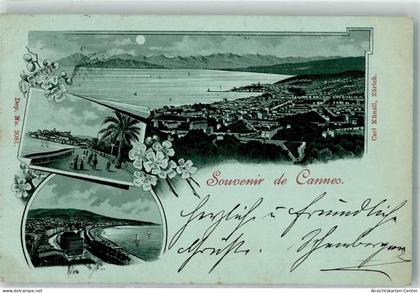 Dep. No. 3051.
Carl Künzli, Zürich.
Souvenir de Cannes.
Herzliche u freundliche
Grüße.
www.ansichtskarten-center.de